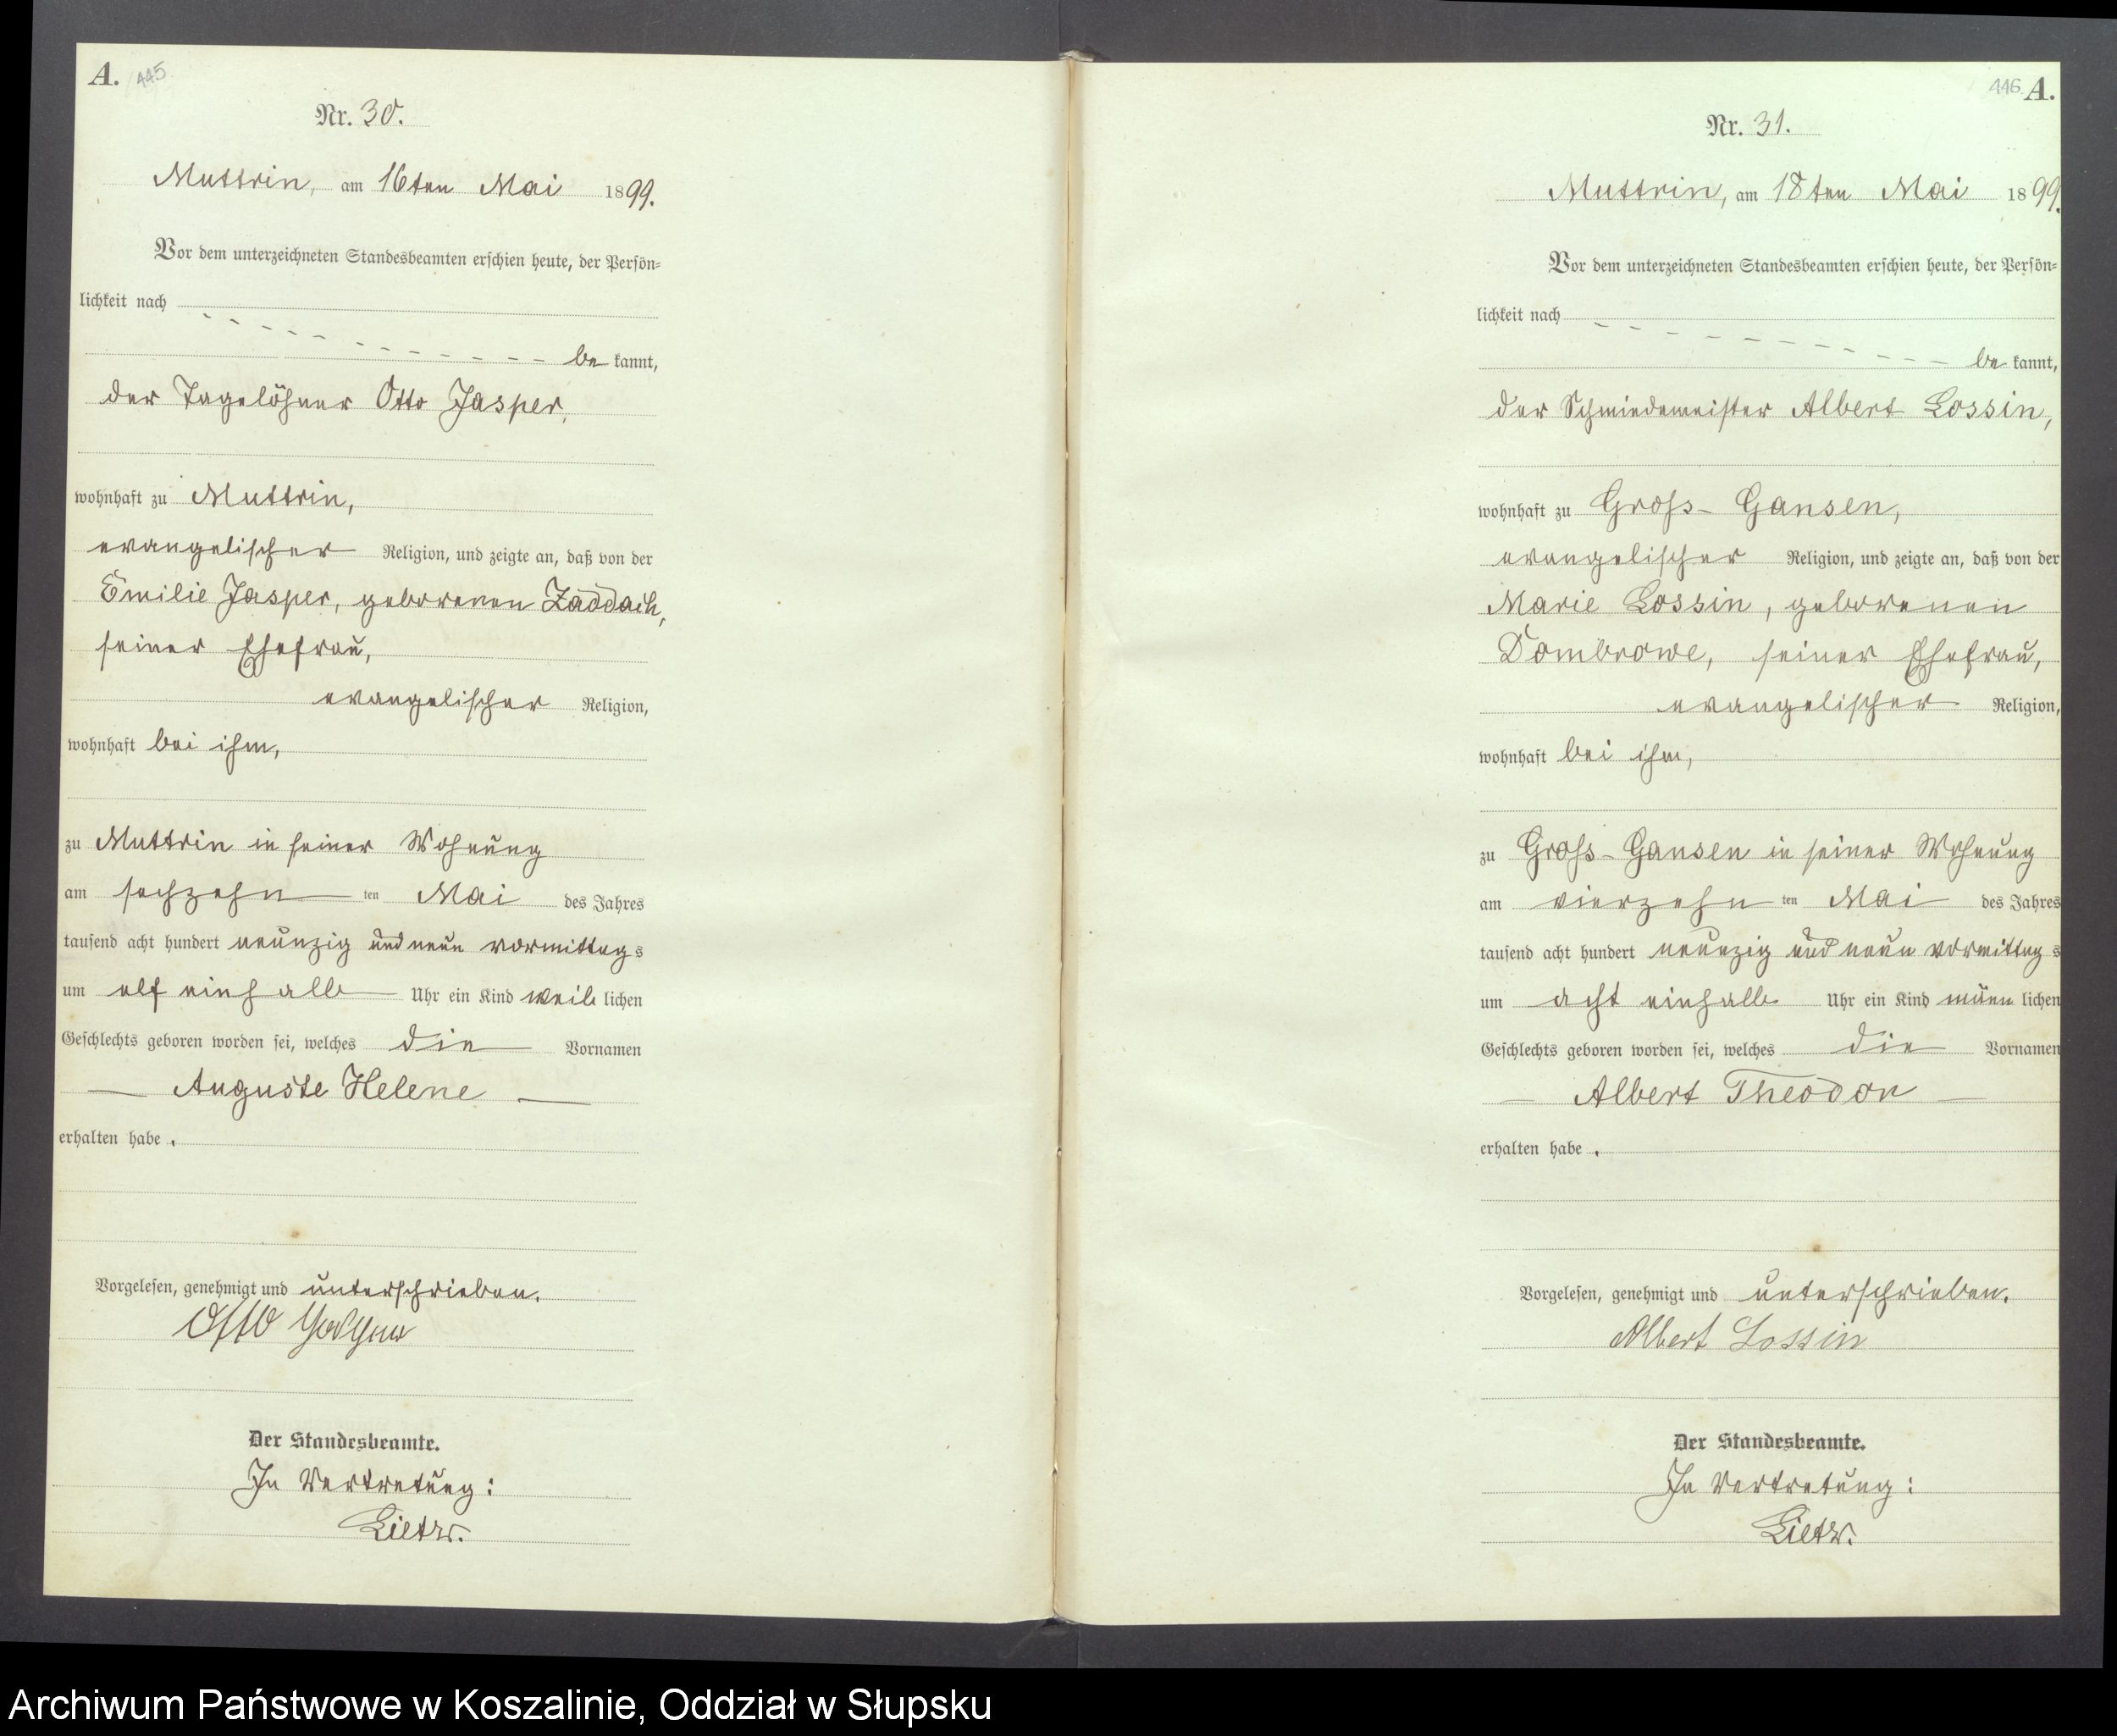 A. 445
Nr. 30.
Muttrin, am 16ten Mai 1899.
Vor dem unterzeichneten Standesbeamten erschien heute, der Persön-
lichkeit nach
be kannt,
der Tagelöhner Otto Jasper,
wohnhaft zu Muttrin,
evangelischer Religion, und zeigte an, daß von der
Emilie Jasper, geborenen Zaddach,
seiner Ehefrau,
evangelischer Religion,
wohnhaft bei ihm,
zu Muttrin in seiner Wohnung
am sechzehn ten Mai des Jahres
tausend acht hundert neunzig und neun vormittag s
um elf einhalb Uhr ein Kind weib lichen
Geschlechts geboren worden sei, welches die Vornamen
Auguste Helene
erhalten habe.
Vorgelesen, genehmigt und unterschrieben.
Otto Jasper
Der Standesbeamte.
In Vertretung:
Lietz.
446 A.
Nr. 31.
Muttrin, am 18ten Mai 1899.
Vor dem unterzeichneten Standesbeamten erschien heute, der Persön-
lichkeit nach
be kannt,
der Schmiedemeister Albert Lossin,
wohnhaft zu Gross-Gansen,
evangelischer Religion, und zeigte an, daß von der
Marie Lossin, geborenen
Dombrowe, seiner Ehefrau,
evangelischer Religion,
wohnhaft bei ihm,
zu Gross-Gansen in seiner Wohnung
am vierzehn ten Mai des Jahres
tausend acht hundert neunzig und neun vormittag s
um acht einhalb Uhr ein Kind männ lichen
Geschlechts geboren worden sei, welches die Vornamen
Albert Theodor
erhalten habe.
Vorgelesen, genehmigt und unterschrieben.
Albert Lossin
Der Standesbeamte.
In Vertretung:
Lietz.
Archiwum Państwowe w Koszalinie, Oddział w Słupsku